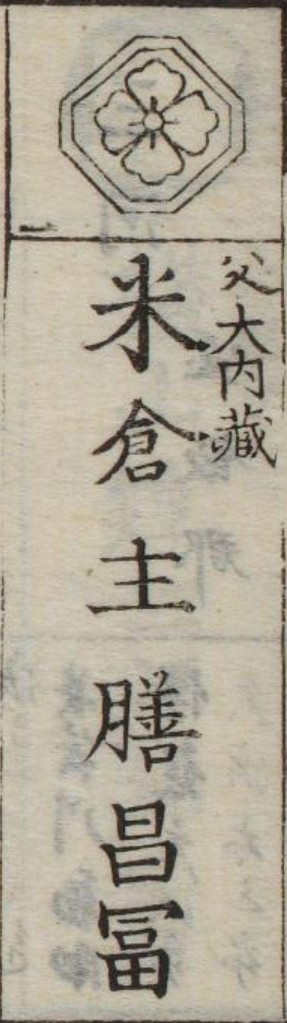 父大内蔵
米倉主膳昌冨